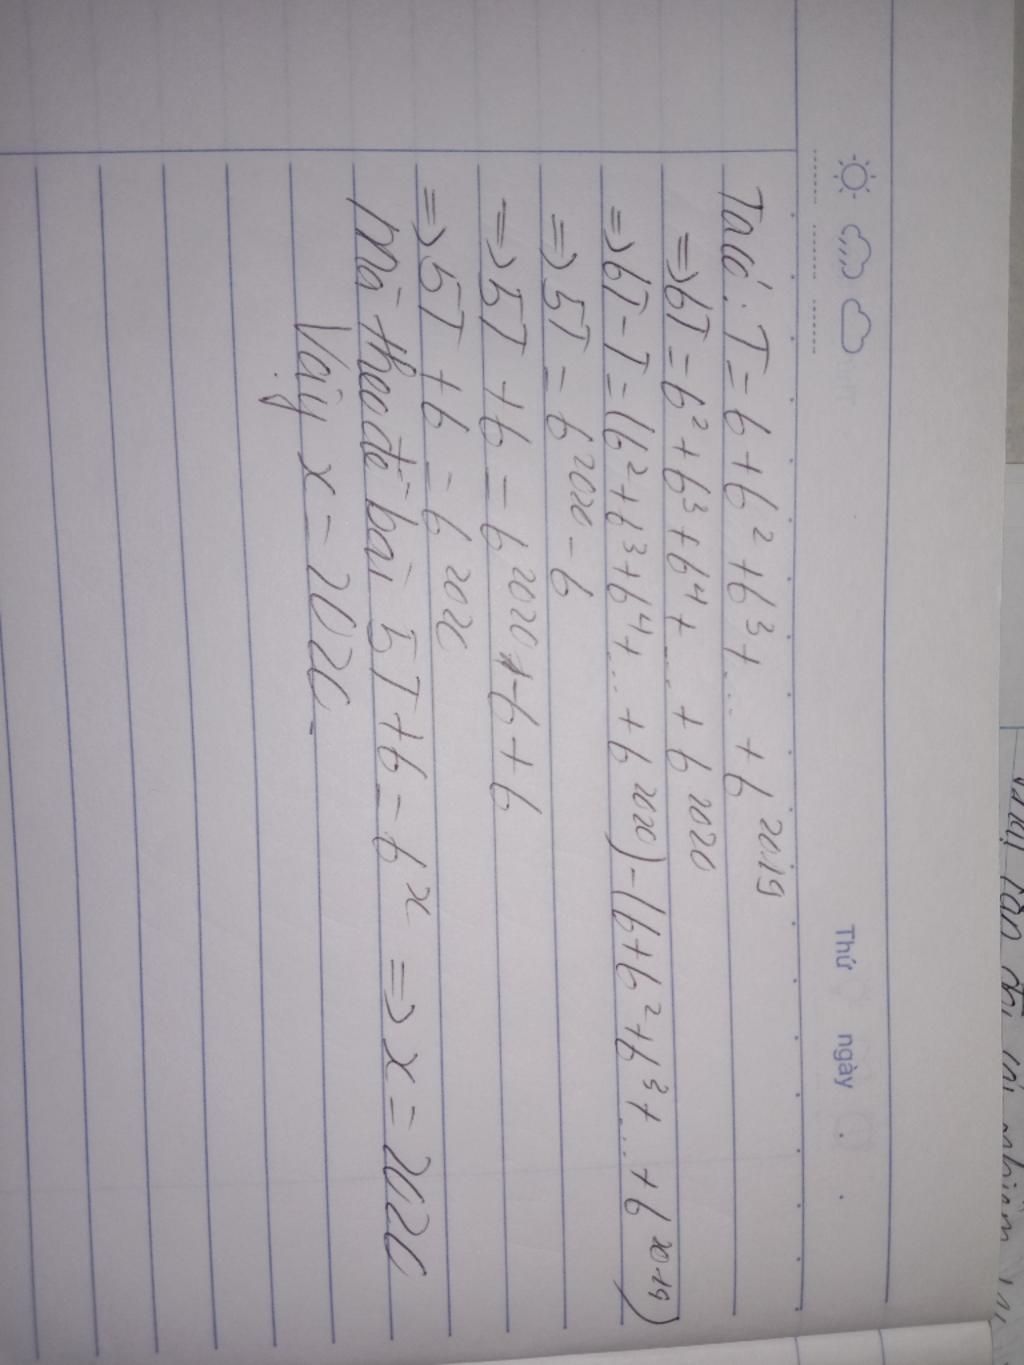 Thứ ngày
Ta có: T = 6 + 6² + 6³ + ... + 6²⁰¹⁹
=> 6T = 6² + 6³ + 6⁴ + ... + 6²⁰²⁰
=> 6T - T = (6² + 6³ + 6⁴ + ... + 6²⁰²⁰) - (6 + 6² + 6³ + ... + 6²⁰¹⁹)
=> 5T = 6²⁰²⁰ - 6
=> 5T + 6 = 6²⁰²⁰ + 6 + 6
=> 5T + 6 = 6²⁰²⁰
Mà theo đề bài 5T + 6 = 6ˣ => x = 2020
Vậy x = 2020